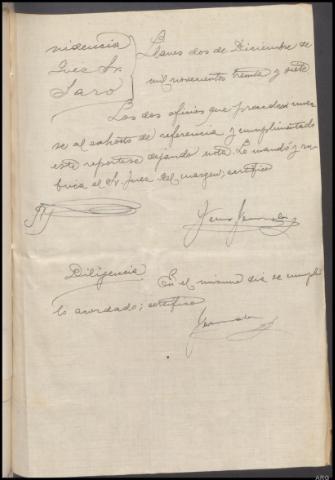 Providencia
Juez Sr.
Saro
Llanes dos de Diciembre de
mil novecientos treinta y siete
Los dos oficios que preceden unase
al exhorto de referencia y cumplimentado
este reportese dejando nota. Lo mandó y rubrica
el Sr. Juez del margen; certifico
Diligencia. En el mismo dia se cumple
lo acordado; certifico